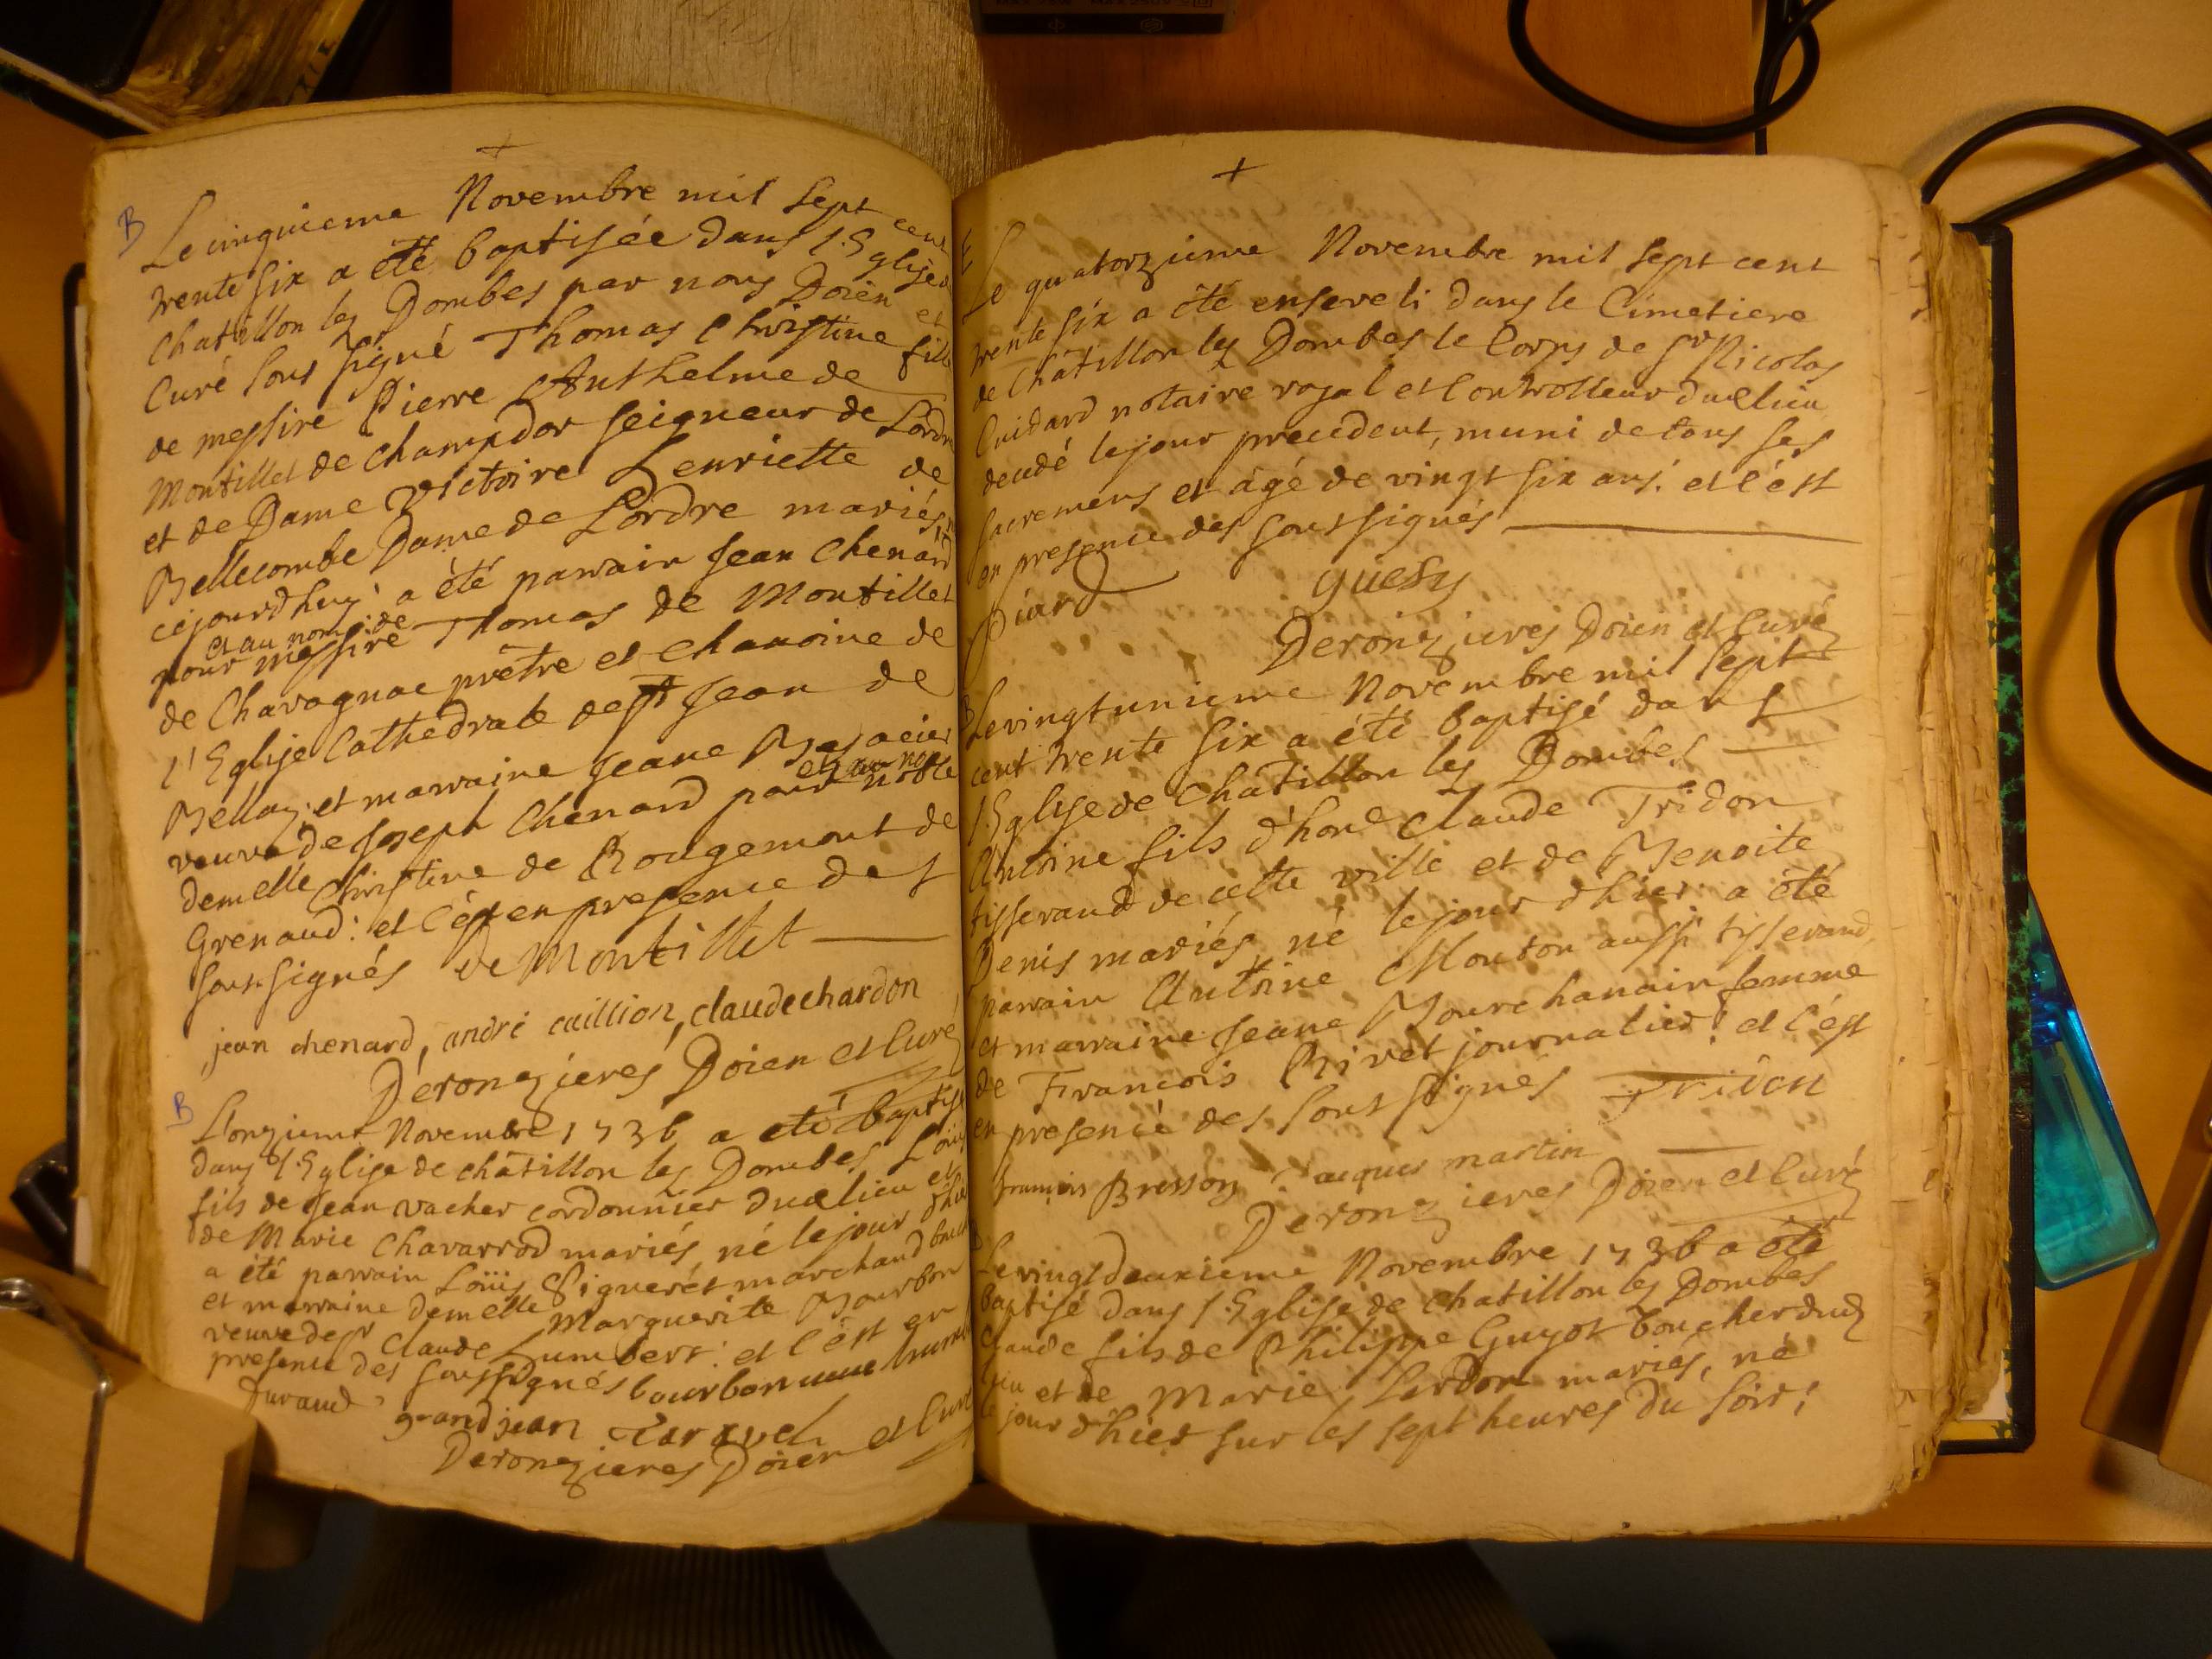 +
B
Le cinquieme Novembre mil sept cent
trente six a été baptisée dans l'Eglise de
Chatillon les Dombes par nous Doïen et
Curé sous signé Thomas Christine fille
de messire Pierre Anthelme de
Montillet de Champdor seigneur de Lordre
et de Dame Victoire Henriette de
Bellecombe Dame de Lordre mariés,
cejourdhuy: a été parrain Jean Chenard
et au nom de
pour messire Thomas de Montillet
de Chavagnac prêtre et chanoine de
l'Eglise Cathedrale de St Jean de
Bellay; et marraine Jeane
et au nom
veuve de Joseph Chenard pour noble
demelle Christine de Rougemont de
Grenaud: et c'est en presence des
sous-signés De Montillet
jean chenard, andré caillion, claude chardon
Deronzieres Doïen et Curé
B
L'onzieme Novembre 1736 a eté baptisé
dans l'Eglise de châtillon les Dombes Loüis
fils de Jean vacher cordonnier dud lieu et
de Marie Chavarrod mariés, né le jour d'hier
a été parrain Loüis Siguerét marchand
et marraine demelle Marguerite Bourbon
veuve de sr Claude Humbert: et c'est en
presence des soussignés bourbon
Durand grandjean
Deronzieres Doïen et Curé
+
Le quatorzieme Novembre mil sept cent
trente six a été enseveli dans le Cimetiere
de Châtillon les Dombes le Corps de Sr Nicolas
Cuidard notaire royal et Controlleur dud lieu
decedé le jour precedent, muni de tous ses
sacremens et âgé de vingt six ans: et c'est
en presence des sous signés
Piard
guesy
Deronzieres Doïen et Curé
Le vingtunieme Novembre mil sept
cent trente six a été baptisé dans
l'Eglise de Châtillon les Dombes
Antoine fils d'hone Claude Tridon
tisserand de cette ville et de Benoite
Denis mariés, né le jour d'hier: a été
parrain Antoine Mouton aussi tisserand
et marraine Jeane Bourchanain femme
de François Rivet journalier: et c'est
en presence des sous signés Tridon
françois Bresson Jacques martin
Deronzieres Doïen et Curé
Le vingtdeuxieme Novembre 1736 a été
baptisé dans l'Eglise de Chatillon les Dombes
Claude fils de Philippe Guyot boucher dud
lieu et de Marie Lardon mariés, né
le jour d'hier sur les sept heures du soir: